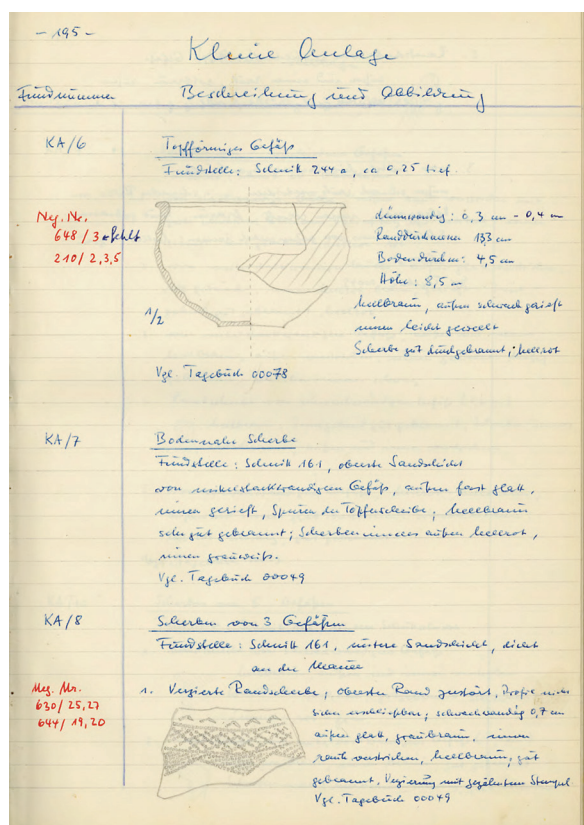 - 195 -
Kleine Anlage
Fundnummer Beschreibung und Abbildung
KA/6 Topfförmiges Gefäß
Fundstelle: Schnitt 244 a, ca 0,25 tief.
Neg. Nr.
648 / 3 fehlt
210 / 2,3,5
dünnwandig: 0,3 cm - 0,4 cm
Randdurchmesser 13,3 cm
Bodendurchm: 4,5 cm
Höhe: 8,5 cm
hellbraun, außen schwach gerieft
innen leicht gewellt
Scherbe gut durchgebrannt, hellrot
1/2
Vgl. Tagebuch 00078
KA/7 Bodennahe Scherbe
Fundstelle: Schnitt 161, oberste Sandschicht
von mittelstarkwandigem Gefäß, außen fast glatt,
innen gerieft, Spuren der Töpferscheibe; hellbraun
sehr gut gebrannt; Scherben außen hellrot,
innen grauweiß.
Vgl. Tagebuch 00049
KA/8 Scherben von 3 Gefäßen
Fundstelle: Schnitt 161, untere Sandschicht, dicht
an der Mauer
Neg. Nr.
630 / 25,27
644 / 19,20
1. Verzierte Randscherbe; oberster Rand zerstört, Profil nicht
sicher erschließbar; schwachwandig 0,7 cm
außen glatt, graubraun, innen
rauh verstrichen, hellbraun, gut
gebrannt, Verzierung mit gezähntem Stempel
Vgl. Tagebuch 00049